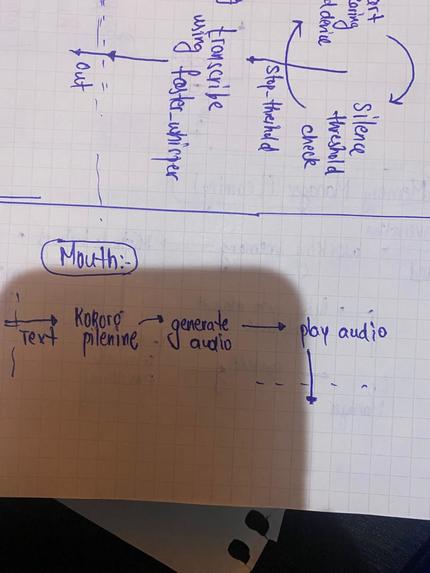 Silence
threshold
check
Stop-threshold
transcribe
using faster-whisper
out
Mouth:-
Text
Kokoro
pilenine
generate
audio
play audio